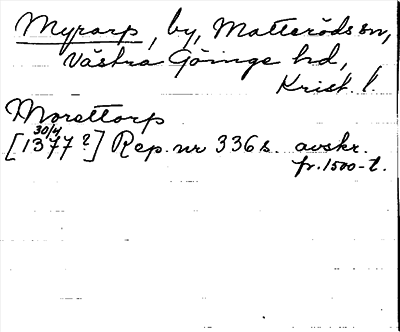 Myrarp, by, Matteröds sn,
Västra Göinge hd,
Krist. l.
Morattorp
30/4
[1377?] Rep. nr 336 s. avskr.
fr. 1500-t.